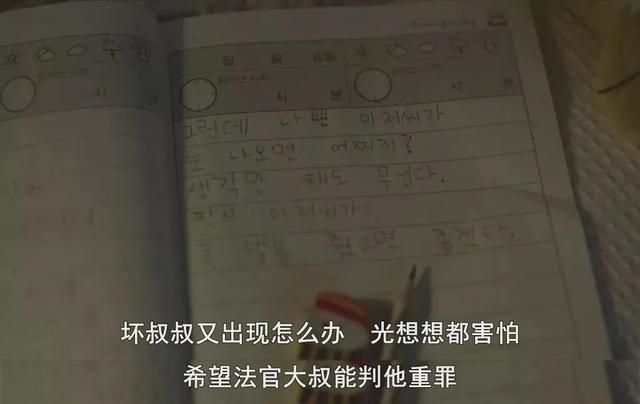 월 일 요일
일어난 시각
시 시 분 시 분
그런데 나쁜 아저씨가
또 나오면 어쩌지?
생각만 해도 무섭다.
판사 아저씨가
벌을 줬으면 좋겠다.
坏叔叔又出现怎么办 光想想都害怕
希望法官大叔能判他重罪